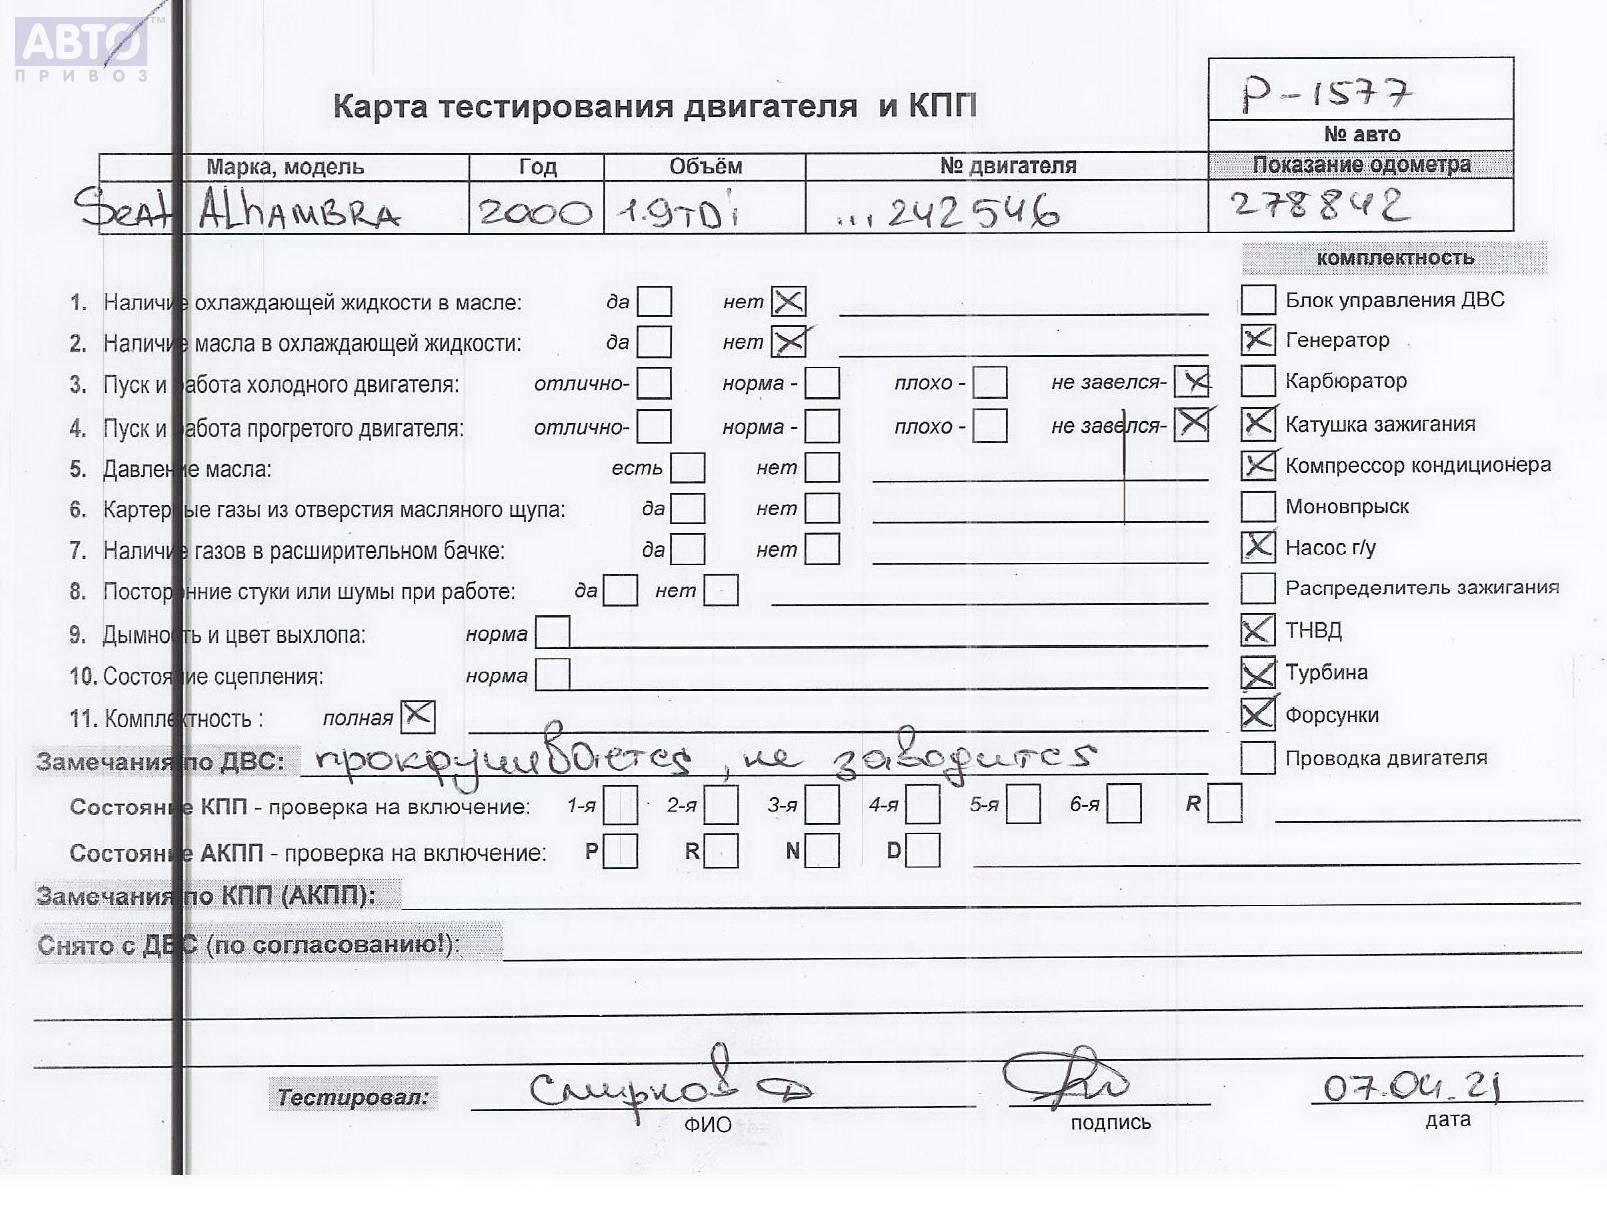 АВТО™
ПРИВОЗ
Карта тестирования двигателя и КПП
Р-1577
№ авто
Марка, модель Год Объём № двигателя Показание одометра
Seat ALhAMBRA 2000 1.9TDi ...242546 278842
комплектность
1. Наличие охлаждающей жидкости в масле: да нет Блок управления ДВС
2. Наличие масла в охлаждающей жидкости: да нет Генератор
3. Пуск и работа холодного двигателя: отлично- норма - плохо - не завелся- Карбюратор
4. Пуск и работа прогретого двигателя: отлично- норма - плохо - не завелся- Катушка зажигания
5. Давление масла: есть нет Компрессор кондиционера
6. Картерные газы из отверстия масляного щупа: да нет Моновпрыск
7. Наличие газов в расширительном бачке: да нет Насос г/у
8. Посторонние стуки или шумы при работе: да нет Распределитель зажигания
9. Дымность и цвет выхлопа: норма ТНВД
10. Состояние сцепления: норма Турбина
11. Комплектность : полная Форсунки
Замечания по ДВС: прокручивается, не заводится Проводка двигателя
Состояние КПП - проверка на включение: 1-я 2-я 3-я 4-я 5-я 6-я R
Состояние АКПП - проверка на включение: P R N D
Замечания по КПП (АКПП):
Снято с ДВС (по согласованию!):
Тестировал: Смирнов Д 07.04.21
ФИО подпись дата